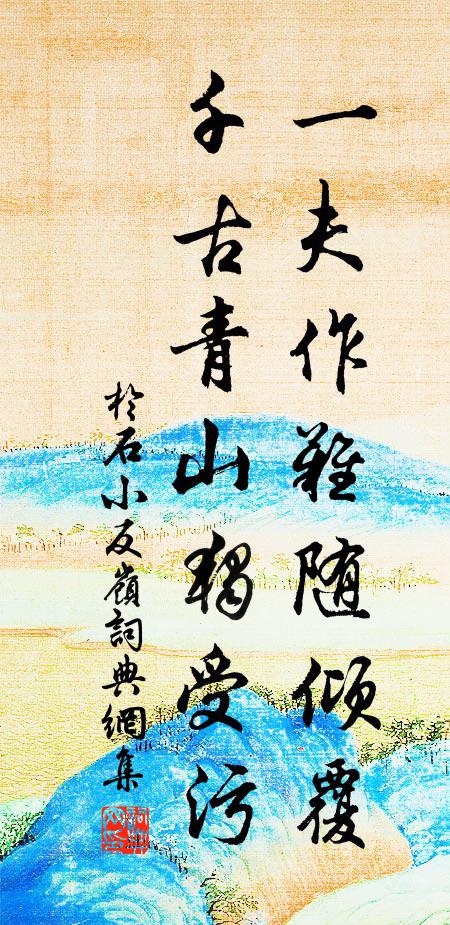 一夫作難随傾覆
千古青山獨受污
於石小反嶺詞典網集